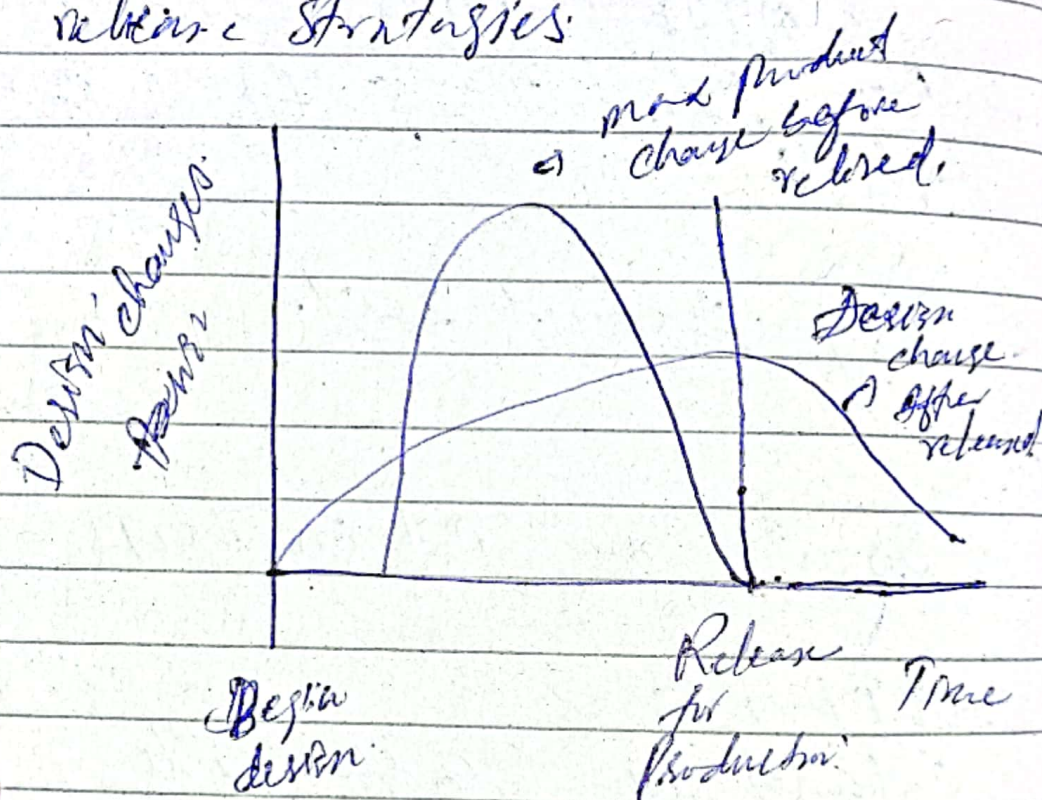 release Strategies.
product
change before
relesed.
Design changes
Design
change
after
released
Begin
design.
Release
for
Production.
Time